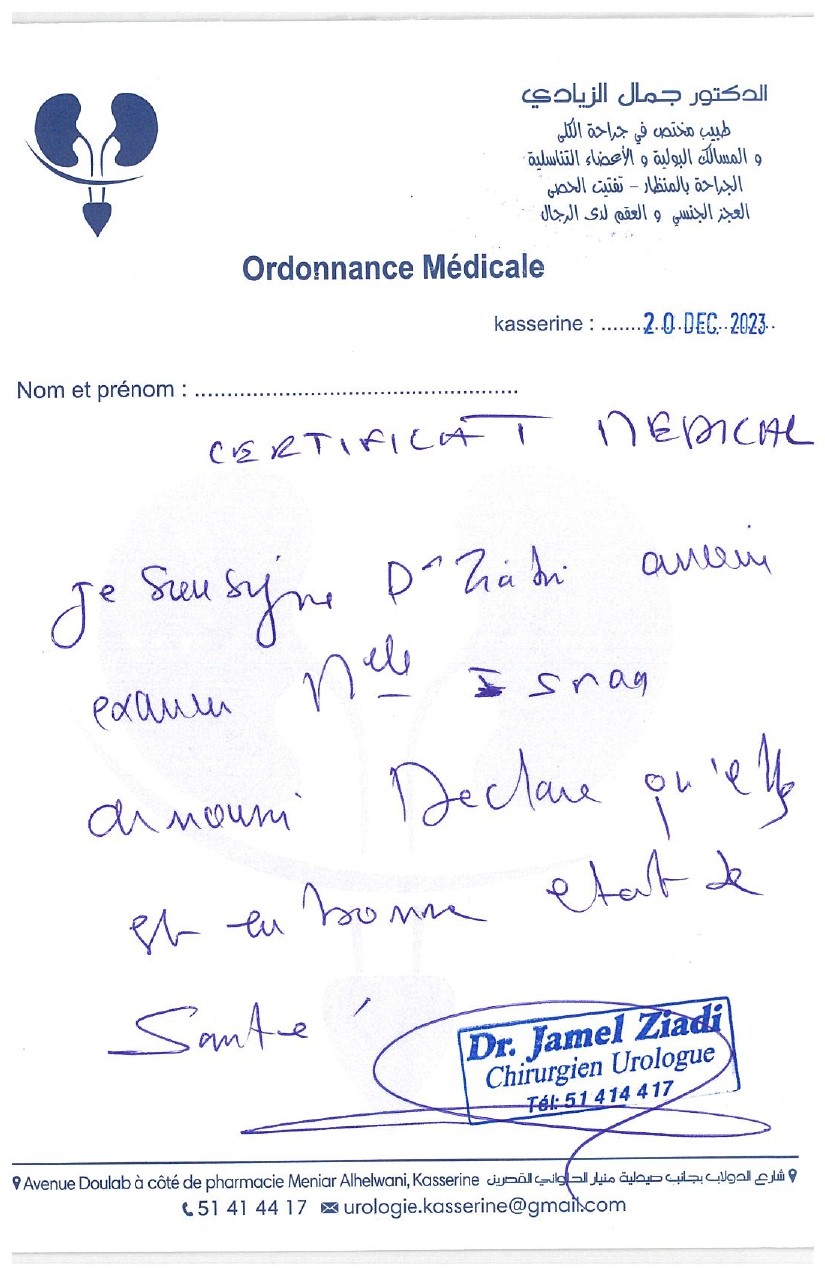 الدكتور جمال الزيادي
طبيب مختص في جراحة الكلى
و المسالك البولية و الأعضاء التناسلية
الجراحة بالمنظار - تفتيت الحصى
العجز الجنسي و العقم لدى الرجال
Ordonnance Médicale
kasserine : ....... 20 DEC. 2023
Nom et prénom : ....................................................
CERTIFICAT MEDICAL
Je sousigne Dr Ziadi
examiner Melle Israa
amouri Declare qu'elle
est en bonne etat de
Santé
Dr. Jamel Ziadi
Chirurgien Urologue
Tél: 51 414 417
Avenue Doulab à côté de pharmacie Meniar Alhelwani, Kasserine شارع الدولاب بجانب صيدلية منيار الحلواني القصرين
51 41 44 17 urologie.kasserine@gmail.com